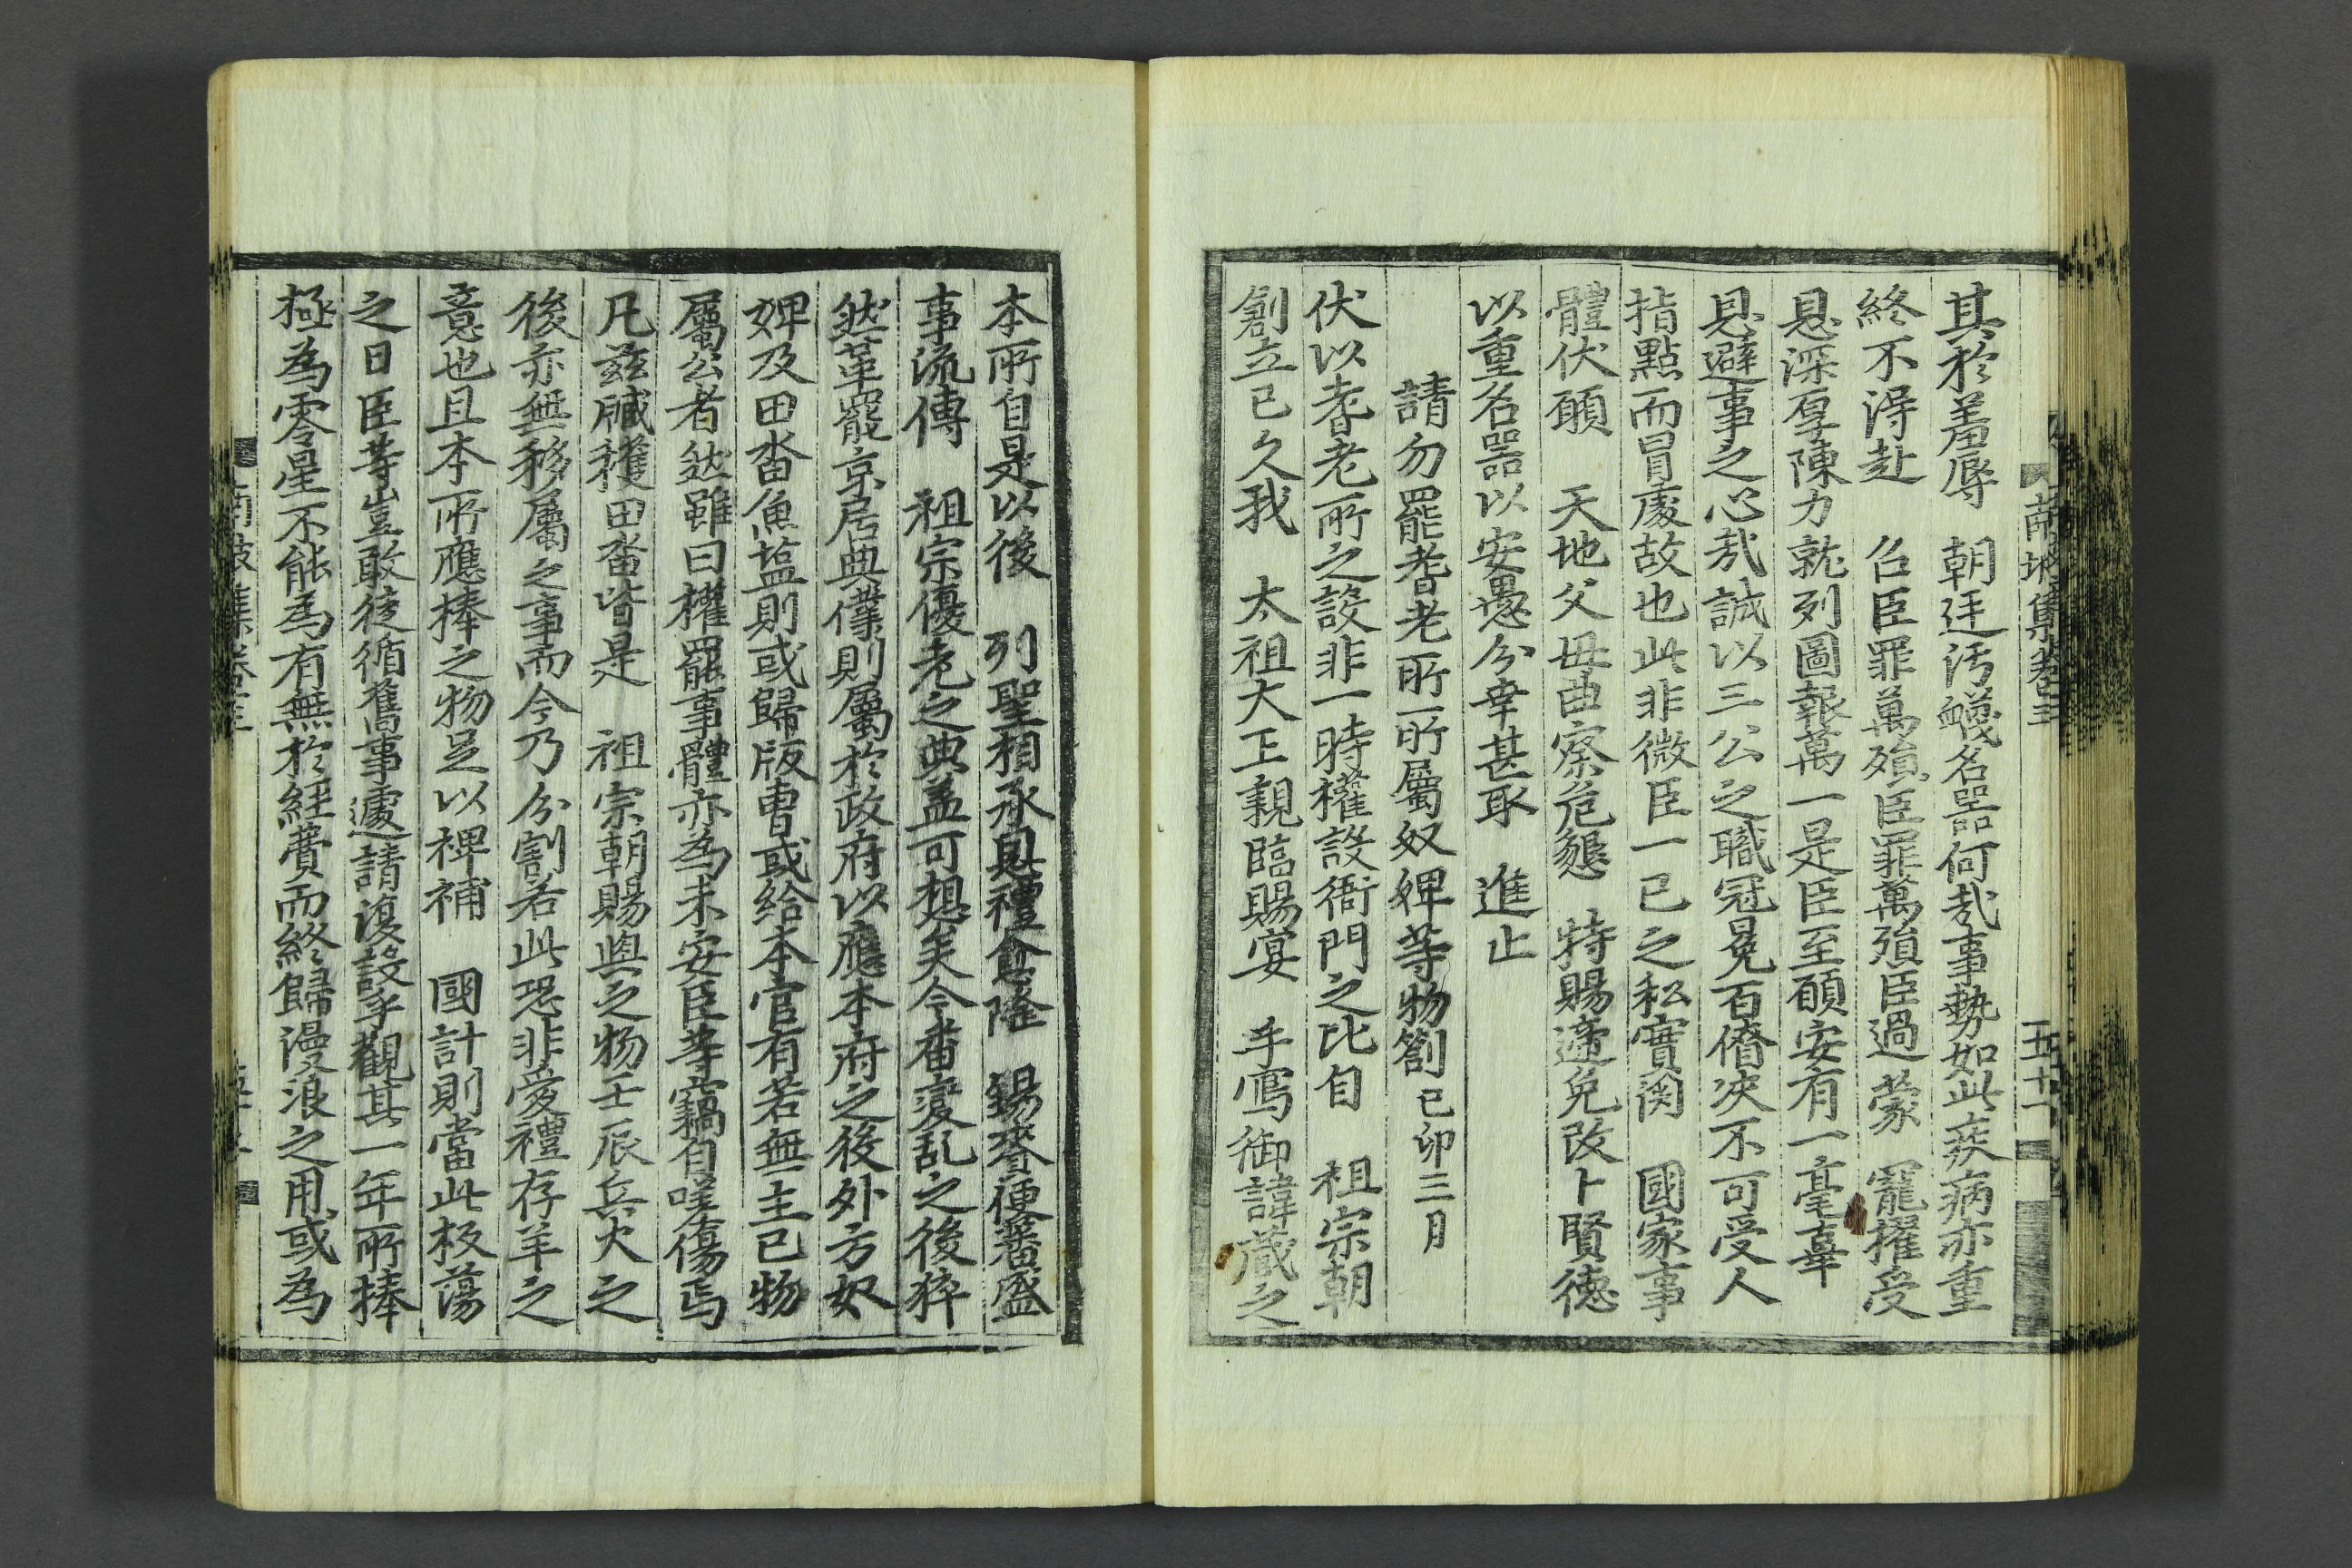 南坡集卷三 五十一
其於羞辱 朝廷汚衊名器何哉事勢如此疾病亦重
終不淂赴 召臣罪萬殞臣罪萬殞臣過 蒙 寵擢受
恩深厚陳力就列圖報萬一是臣至願安有一毫辜
恩避事之心哉誠以三公之職冠冕百僚决不可受人
指點而冒處故也此非微臣一己之私實関 國家事
體伏願 天地父母曲察危懇 特賜遞免改卜賢德
以重名器以安愚分幸甚取 進止
請勿罷耆老所所屬奴婢等物劄 己卯三月
伏以耆老所之設非一時權設衙門之比自 祖宗朝
創立已久我 太祖大王親臨賜宴 手寫御諱藏之
本所自是以後 列聖相承恩禮愈隆 錫賚便蕃盛
事流傳 祖宗優老之典盖可想矣今番變乱之後猝
然革罷京居典僕則屬於政府以應本府之後外方奴
婢及田畓魚塩則或歸版曹或給本官有若無主已物
屬公者然雖曰權罷事體亦為未安臣等竊自嗟傷焉
凡玆臧穫田畓皆是 祖宗朝賜與之物壬辰兵火之
後亦無移屬之事而今乃分割若此恐非愛禮存羊之
意也且本所應捧之物足以裨補 國計則當此板蕩
之日臣等豈敢徒循舊事遽請復設乎觀其一年所捧
極為零星不能為有無於經費而終歸漫浪之用或為